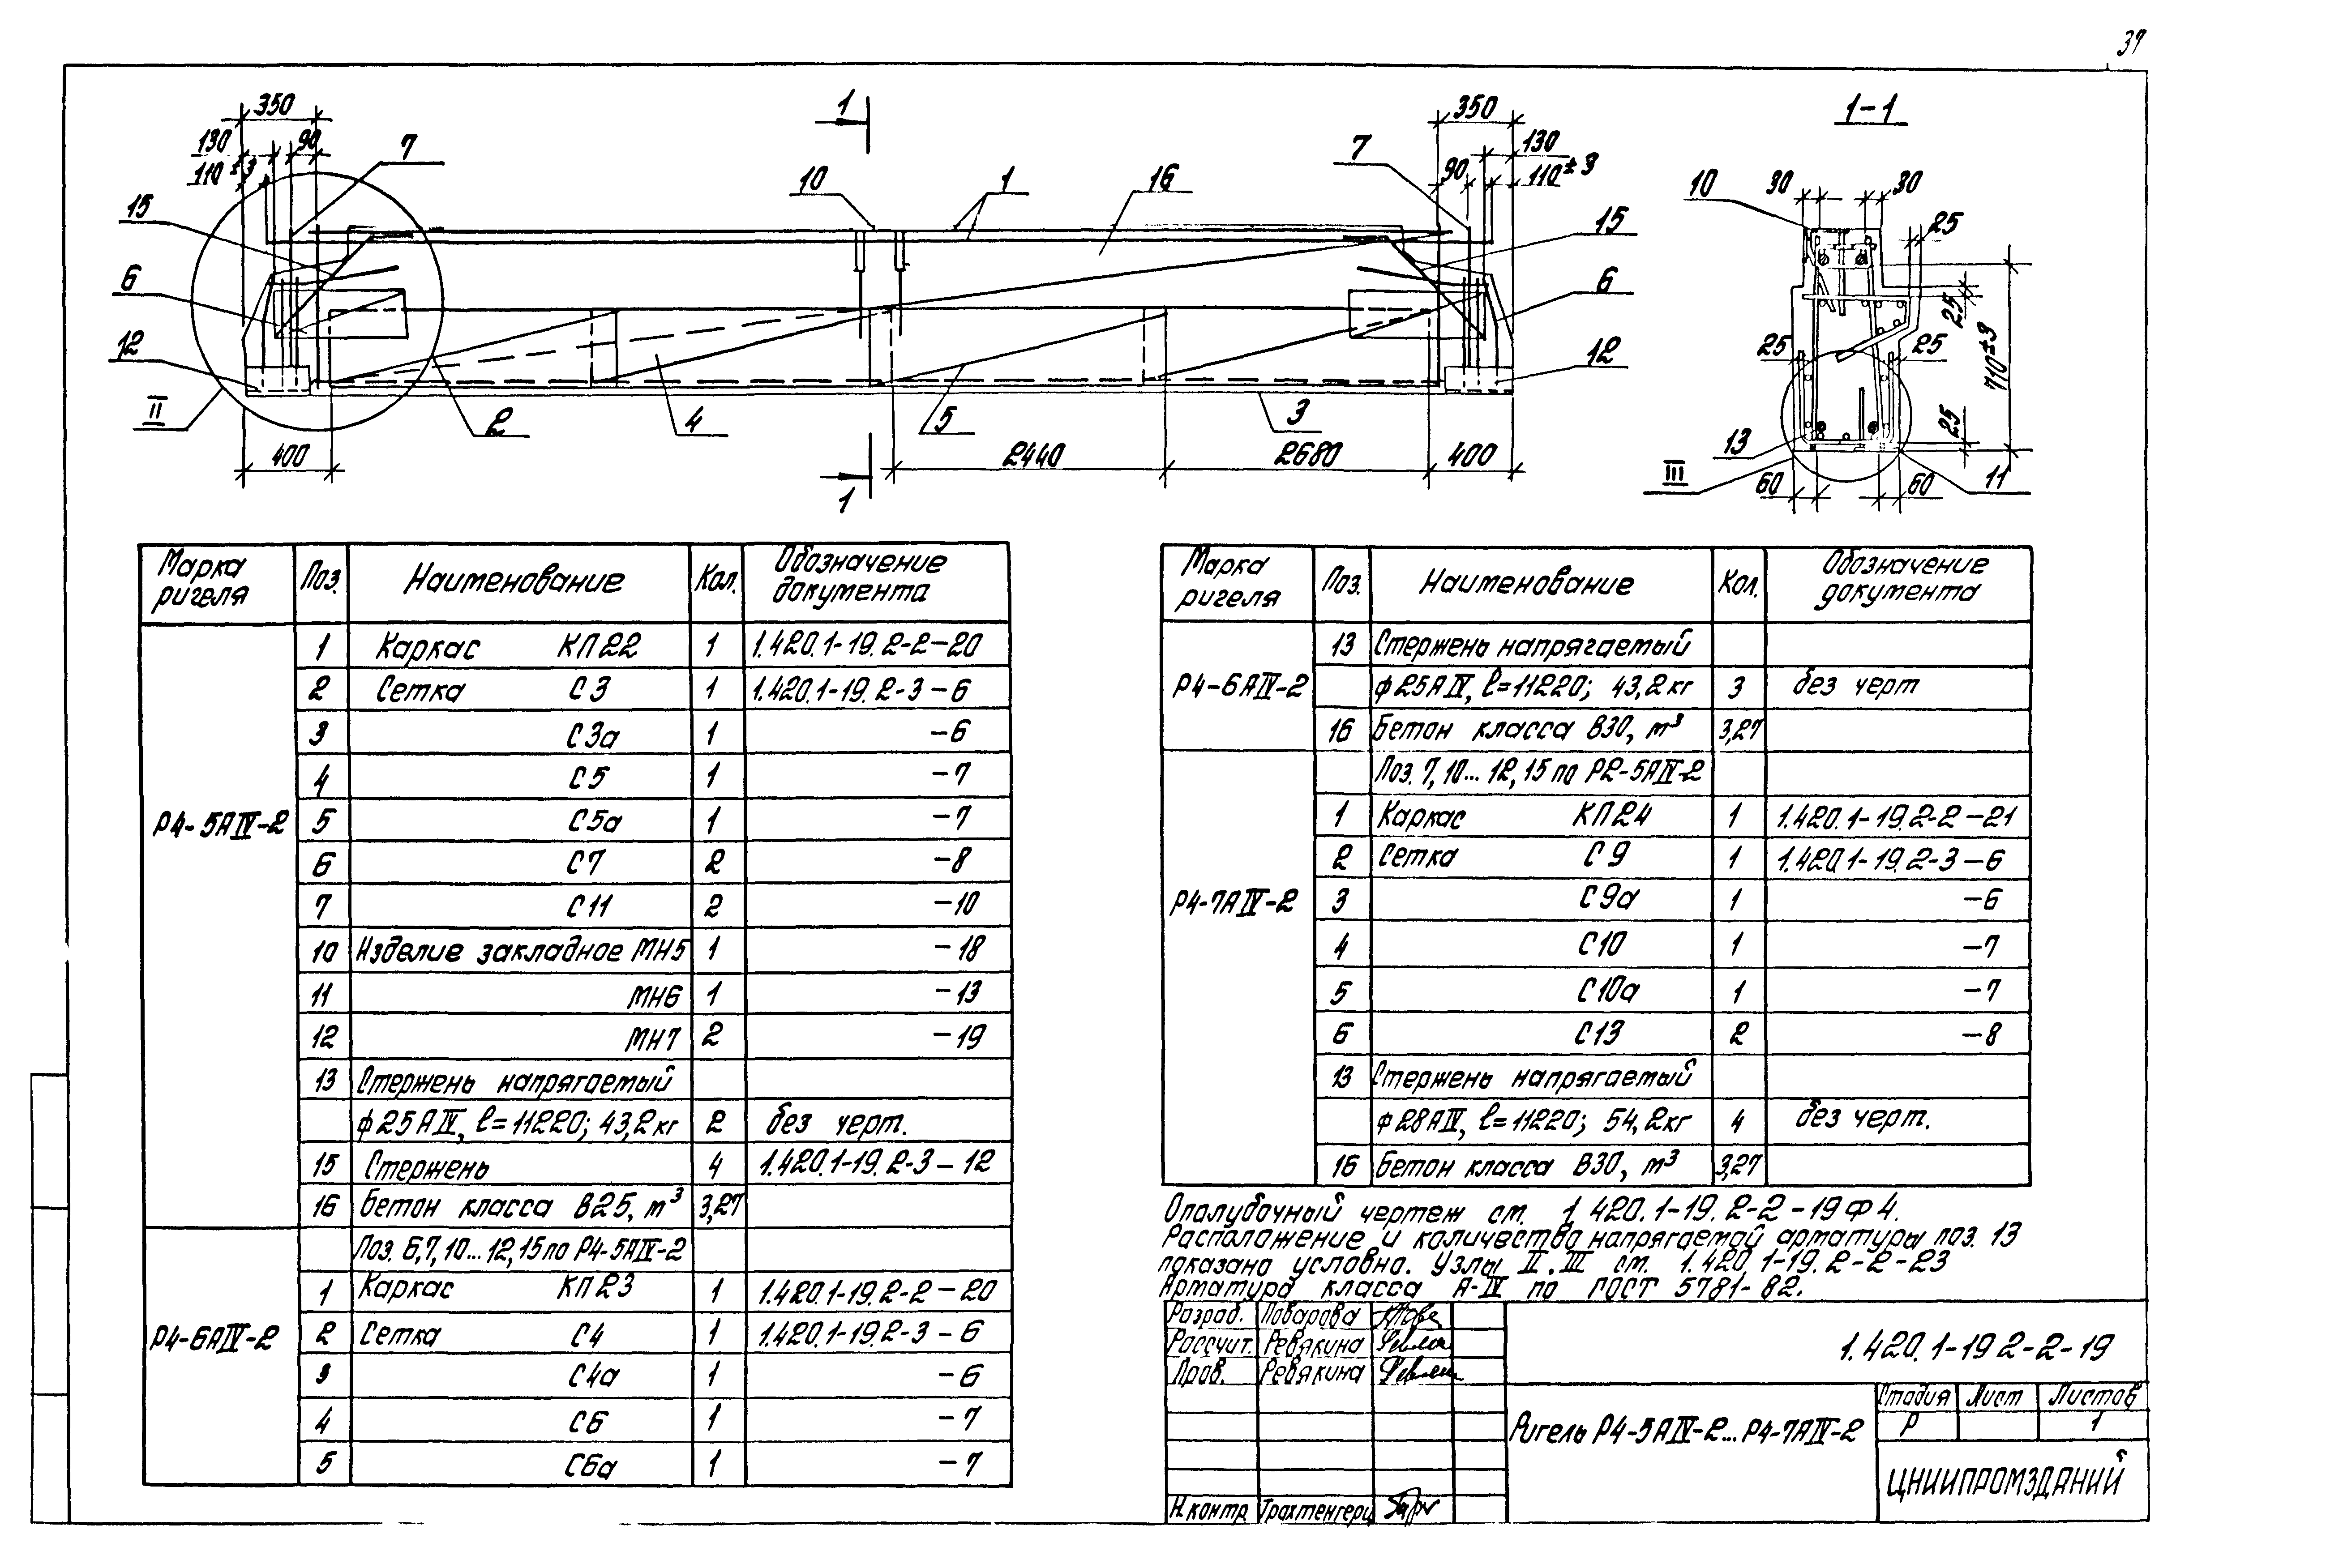 37
350
130
90
110±3
7
15
6
12
II
2
400
1
10
1
16
4
5
3
1
2440
2680
400
350
130
90
110±3
7
15
6
12
1-1
10
30
30
25
25
710±3
25
25
25
13
III
60
60
11
Марка ригеля | Поз. | Наименование | Кол. | Обозначение документа
Р4-5АIV-2
1 | Каркас КП22 | 1 | 1.420.1-19.2-2-20
2 | Сетка С3 | 1 | 1.420.1-19.2-3-6
3 | С3а | 1 | -6
4 | С5 | 1 | -7
5 | С5а | 1 | -7
6 | С7 | 2 | -8
7 | С11 | 2 | -10
10 | Изделие закладное МН5 | 1 | -18
11 | МН6 | 1 | -13
12 | МН7 | 2 | -19
13 | Стержень напрягаемый
ф25АIV, ℓ=11220; 43,2кг | 2 | без черт.
15 | Стержень | 4 | 1.420.1-19.2-3-12
16 | Бетон класса В25, м³ | 3,27
Р4-6АIV-2
Поз. 6,7,10...12,15 по Р4-5АIV-2
1 | Каркас КП23 | 1 | 1.420.1-19.2-2-20
2 | Сетка С4 | 1 | 1.420.1-19.2-3-6
3 | С4а | 1 | -6
4 | С6 | 1 | -7
5 | С6а | 1 | -7
Марка ригеля | Поз. | Наименование | Кол. | Обозначение документа
Р4-6АIV-2
13 | Стержень напрягаемый
ф25АIV, ℓ=11220; 43,2кг | 3 | без черт
16 | Бетон класса В30, м³ | 3,27
Р4-7АIV-2
Поз. 7,10...12,15 по Р2-5АIV-2
1 | Каркас КП24 | 1 | 1.420.1-19.2-2-21
2 | Сетка С9 | 1 | 1.420.1-19.2-3-6
3 | С9а | 1 | -6
4 | С10 | 1 | -7
5 | С10а | 1 | -7
6 | С13 | 2 | -8
13 | Стержень напрягаемый
ф28АIV, ℓ=11220; 54,2кг | 4 | без черт.
16 | Бетон класса В30, м³ | 3,27
Опалубочный чертеж см. 1.420.1-19.2-2-19Ф4.
Расположение и количество напрягаемой арматуры поз. 13
показано условно. Узлы II, III см. 1.420.1-19.2-2-23
Арматура класса А-IV по ГОСТ 5781-82.
Разраб. Поварова
Рассчит. Ревякина
Пров. Ревякина
Н.контр Трахтенгерц
1.420.1-19 2-2-19
Ригель Р4-5АIV-2...Р4-7АIV-2
Стадия Лист Листов
Р 1
ЦНИИПРОМЗДАНИЙ